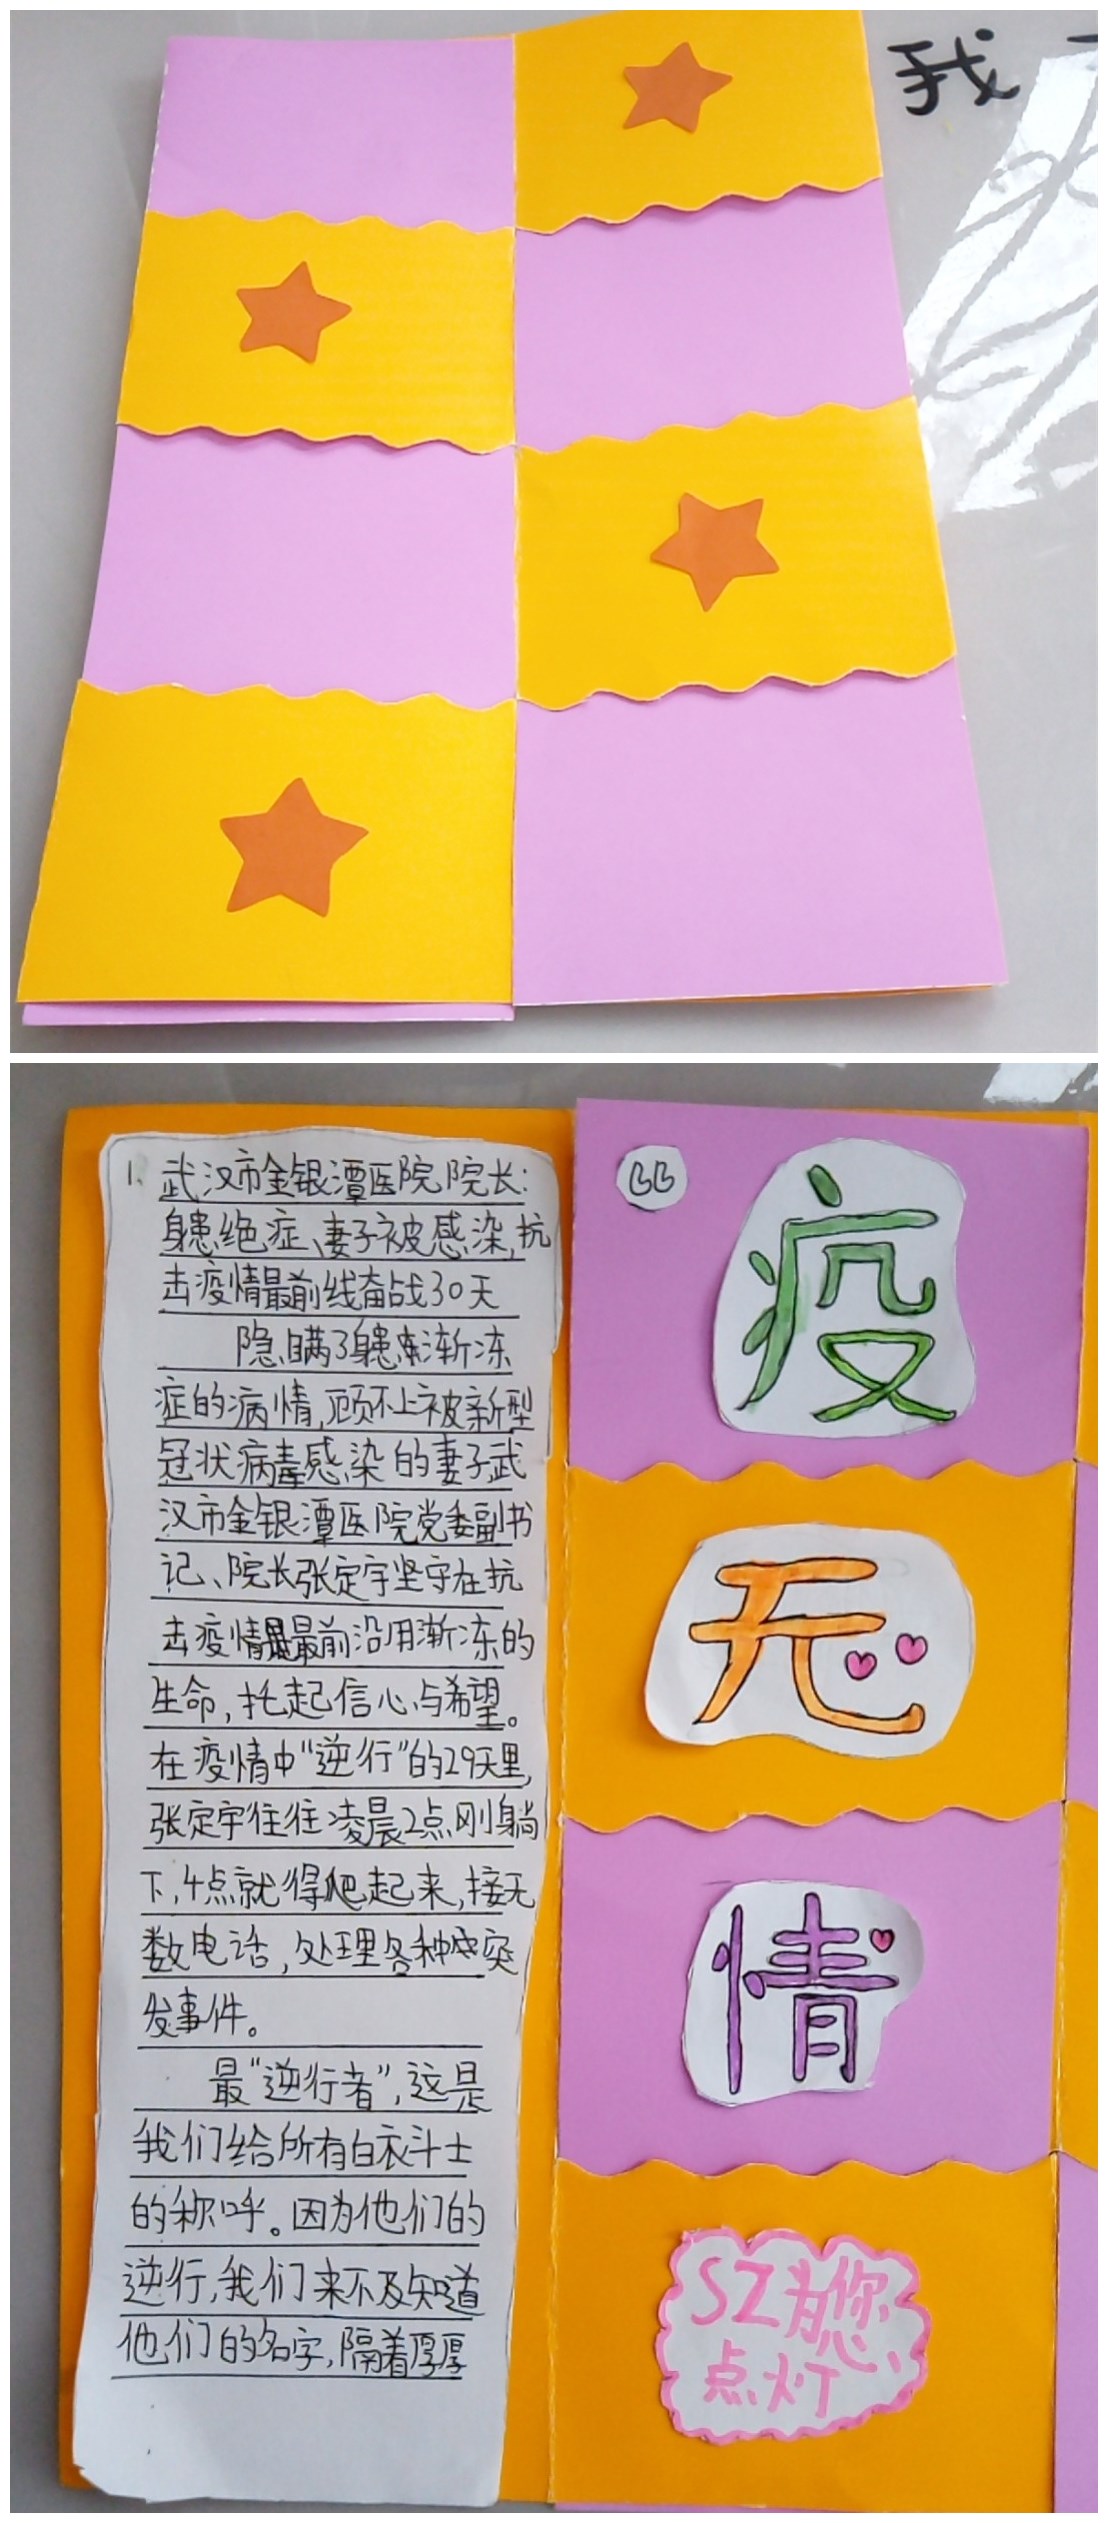 我
1、武汉市金银潭医院院长:
身患绝症、妻子被感染,抗
击疫情最前线奋战30天
隐瞒了身患渐冻
症的病情,顾不上被新型
冠状病毒感染的妻子武
汉市金银潭医院党委副书
记、院长张定宇坚守在抗
击疫情最前沿用渐冻的
生命,托起信心与希望。
在疫情中“逆行”的29天里,
张定宇往往凌晨2点刚躺
下,4点就得爬起来,接无
数电话,处理各种突
发事件。
最“逆行者”,这是
我们给所有白衣斗士
的称呼。因为他们的
逆行,我们来不及知道
他们的名字,隔着厚厚
疫
无
情
SZ为您
点灯